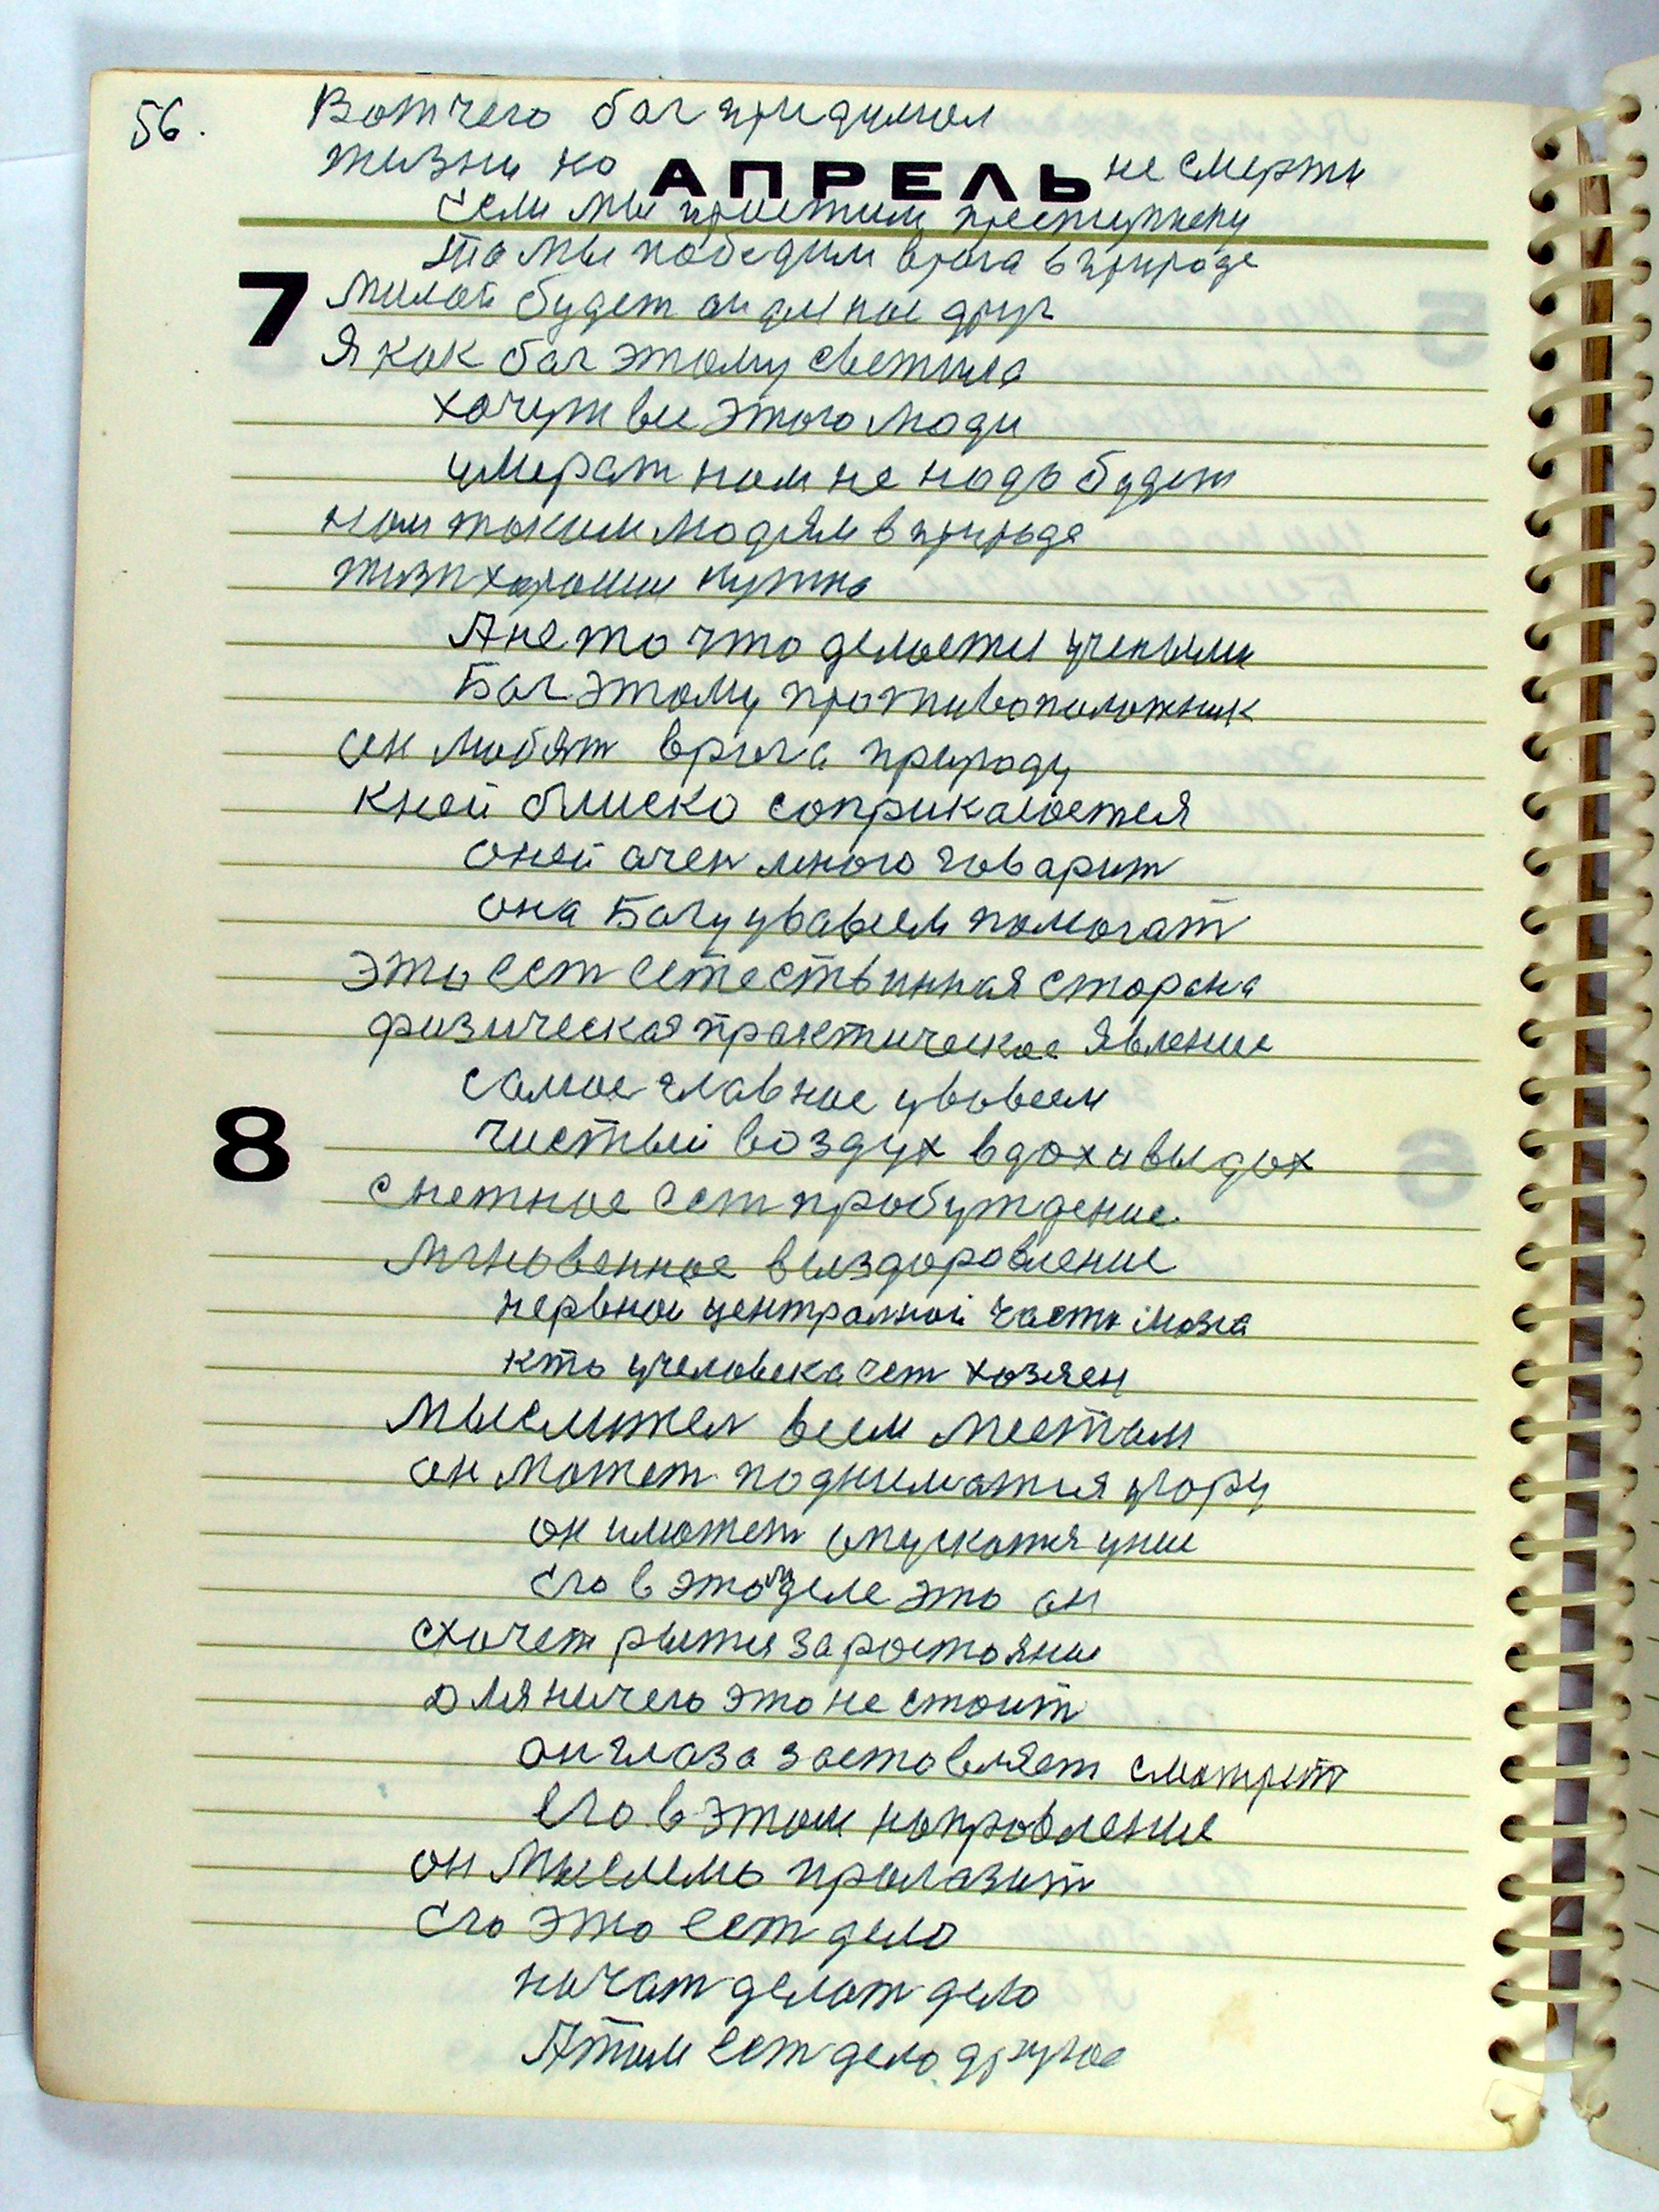 56.
Вот чего бог придумал
жизни ко не смерти
АПРЕЛЬ
если мы простим преступнику
то мы победим врага в природе
7
милой будет он для нас друг
Я как бог этому светила
хочут все этого люди
умерат нам не надо будет
нам таким людям в природе
жизн хорошии нужна
А не то что делается ученыи
Бог этому противоположник
он любят врага природу
кней блиско соприкасается
оней очен много говарит
она Богу увавсем помогат
это ест естествинная сторана
физическая практическое явление
самое главное увовсем
8
чистый воздух вдох и выдох
снежное ест пробуждение
мгновенное выздоровление
нервной централной части мозга
кто учеловека ест хозяен
мыслител всем местам
он может подниматся угору
он и может опускатся униз
его в этом деле это он
схочет рытся за ростояние
для ничего это не стоит
он глаза заставляет смотрет
его в этом направление
он мыслемо пролазит
его это ест дело
начат делат дело
Атом ест дело другое